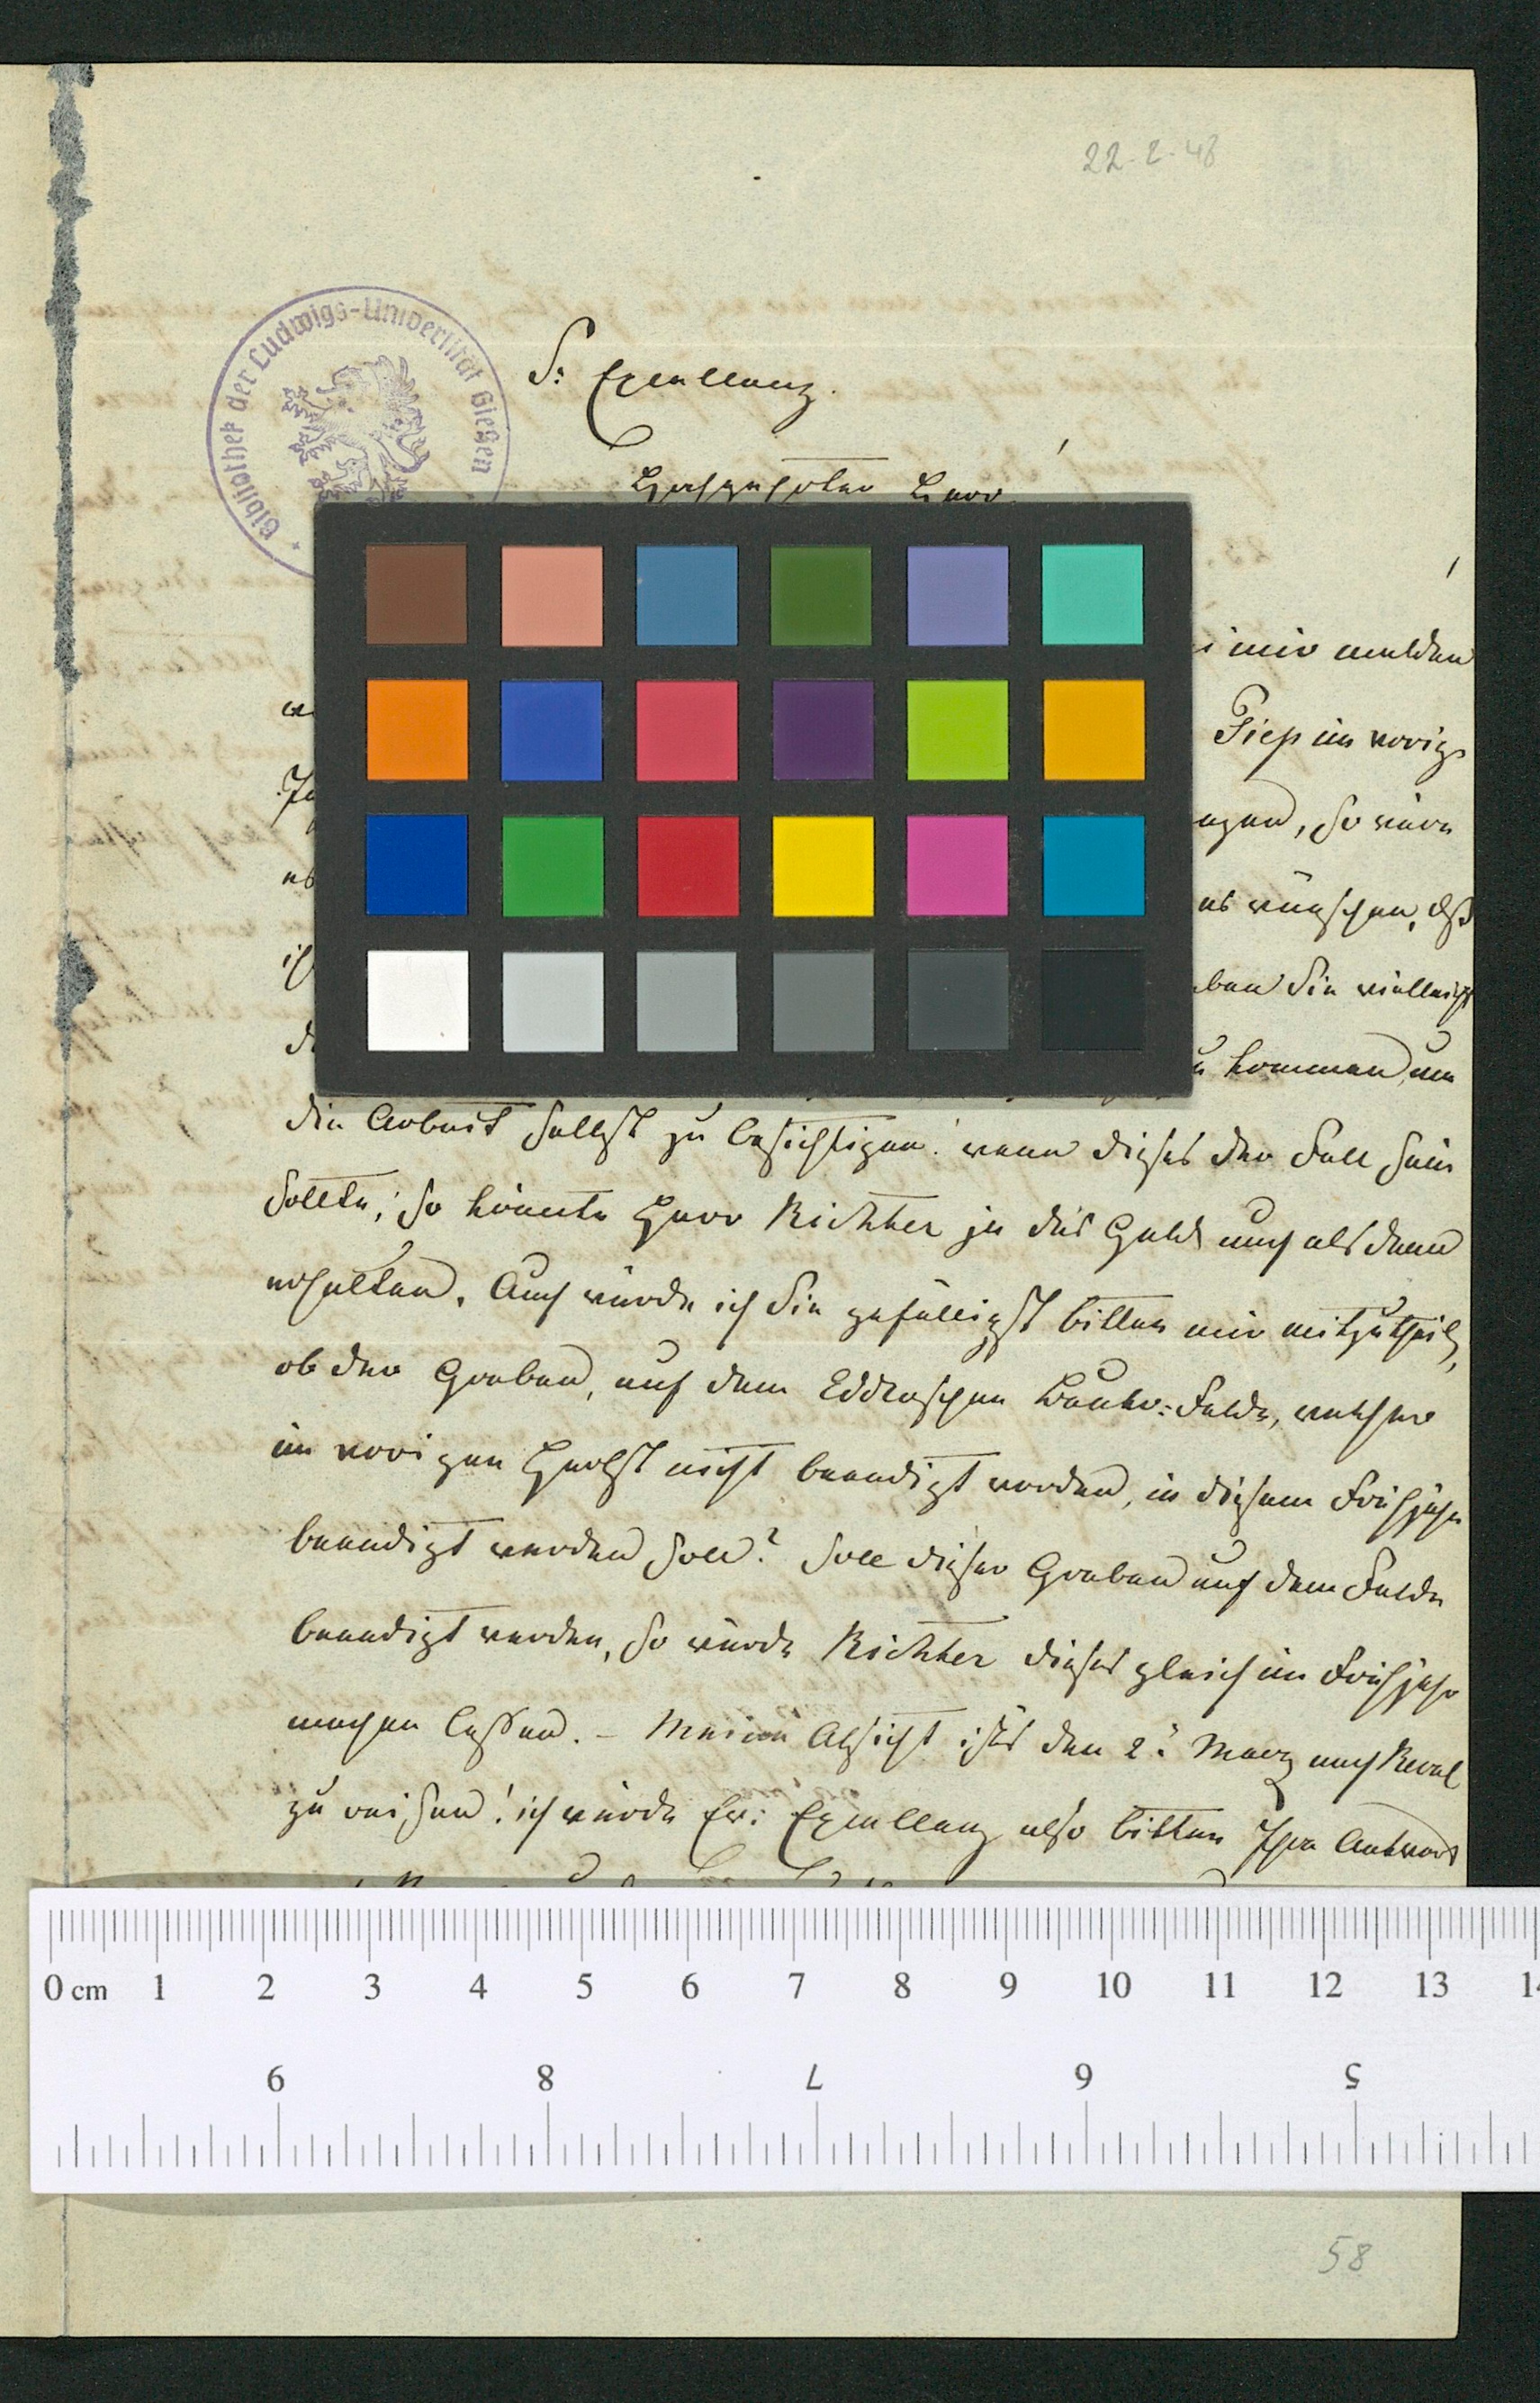 22.2.48
Bibliothek der Ludwigs-Universität Gießen
S: Excellenz.
Hochgeehrter Herr
mir melden
im vorig
so wäre
es wünschen, dß
ben Sie vielleicht
zu kommen um
die Arbeit selbst zu besichtigen! wenn dieses der Fall sein
sollte, so könnte Herr Richter ja das Geld auch alsdann
erhalten. Auch würde ich Sie gefälligst bitten mir mitzutheil,
ob der Graben, auf dem Eddrasschen Felde, welcher
im vorigen Herbst nicht beendigt worden, in diesem Frühjahr
beendigt werden soll? Soll dieser Graben auf dem Felde
beendigt werden, so würde Richter dieses gleich im Frühjahr
machen lassen. – Meine Absicht ist's den 2: Maerz nach Reval
zu reisen! ich würde Ew: Excellenz also bitten Ihre Antwort
0 cm 1 2 3 4 5 6 7 8 9 10 11 12 13
9 8 7 6 5
58